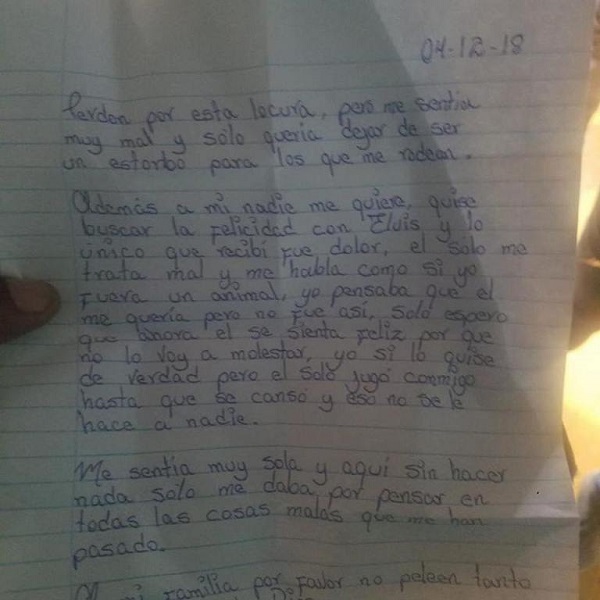 04-12-18
Perdon por esta locura, pero me sentia
muy mal y solo queria dejar de ser
un estorbo para los que me rodean.
Además a mi nadie me quiere, quise
buscar la felicidad con Eluis y lo
único que recibí fue dolor, el solo me
trata mal y me habla como si yo
fuera un animal, yo pensaba que el
me quería pero no fue asi, solo espero
que ahora el se sienta feliz por que
no lo voy a molestar, yo si lo quise
de verdad pero el solo jugó conmigo
hasta que se canso y eso no se le
hace a nadie.
Me sentia muy sola y aqui sin hacer
nada solo me daba por pensar en
todas las cosas malas que me han
pasado.
mi familia por favor no peleen tanto